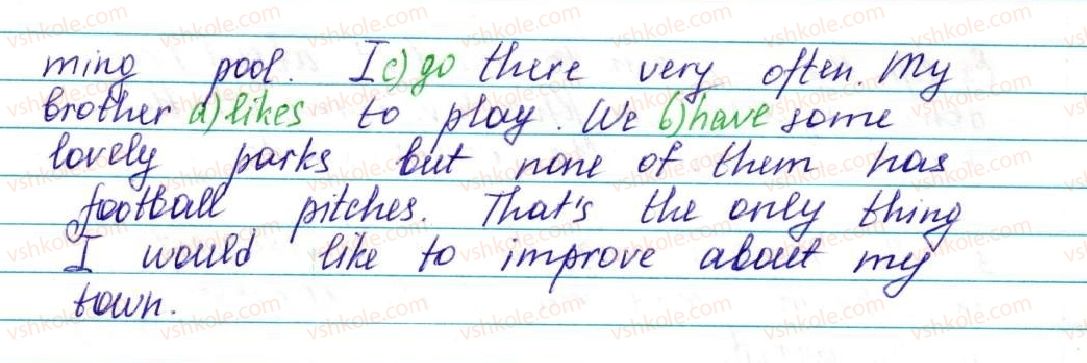 ming pool. I c) go there very often. My
brother a) likes to play. We b) have some
lovely parks but none of them has
football pitches. That's the only thing
I would like to improve about my
town.